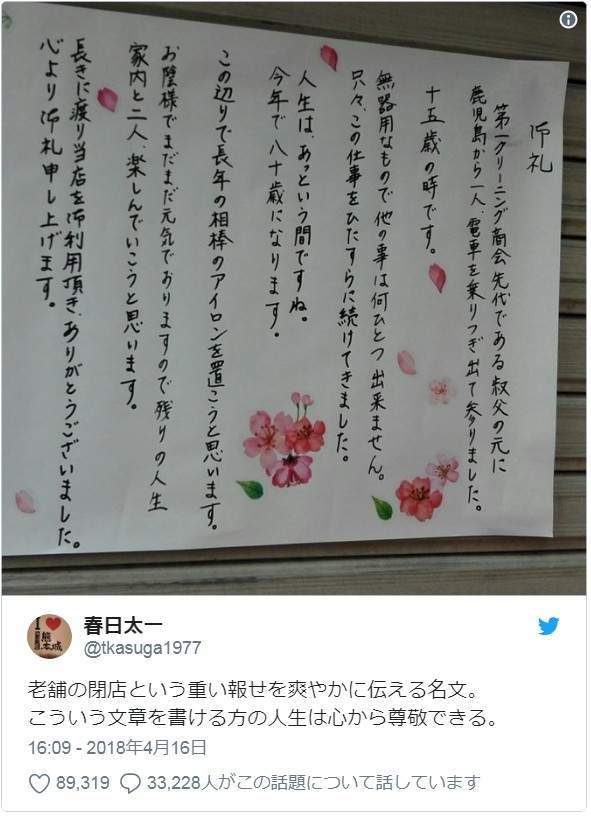 御礼
第一クリーニング商会先代である叔父の元に
鹿児島から一人、電車を乗りつぎ出て参りました。
十五歳の時です。
無器用なもので他の事は何ひとつ出来ません。
只々、この仕事をひたすらに続けてきました。
人生は、あっという間ですね。
今年で八十歳になります。
この辺りで長年の相棒のアイロンを置こうと思います。
お陰様でまだまだ元気でおりますので残りの人生
家内と二人、楽しんでいこうと思います。
長きに渡り当店を御利用頂き、ありがとうございました。
心より御礼申し上げます。
I
熊本城
春日太一
@tkasuga1977
老舗の閉店という重い報せを爽やかに伝える名文。
こういう文章を書ける方の人生は心から尊敬できる。
16:09 - 2018年4月16日
89,319 33,228人がこの話題について話しています